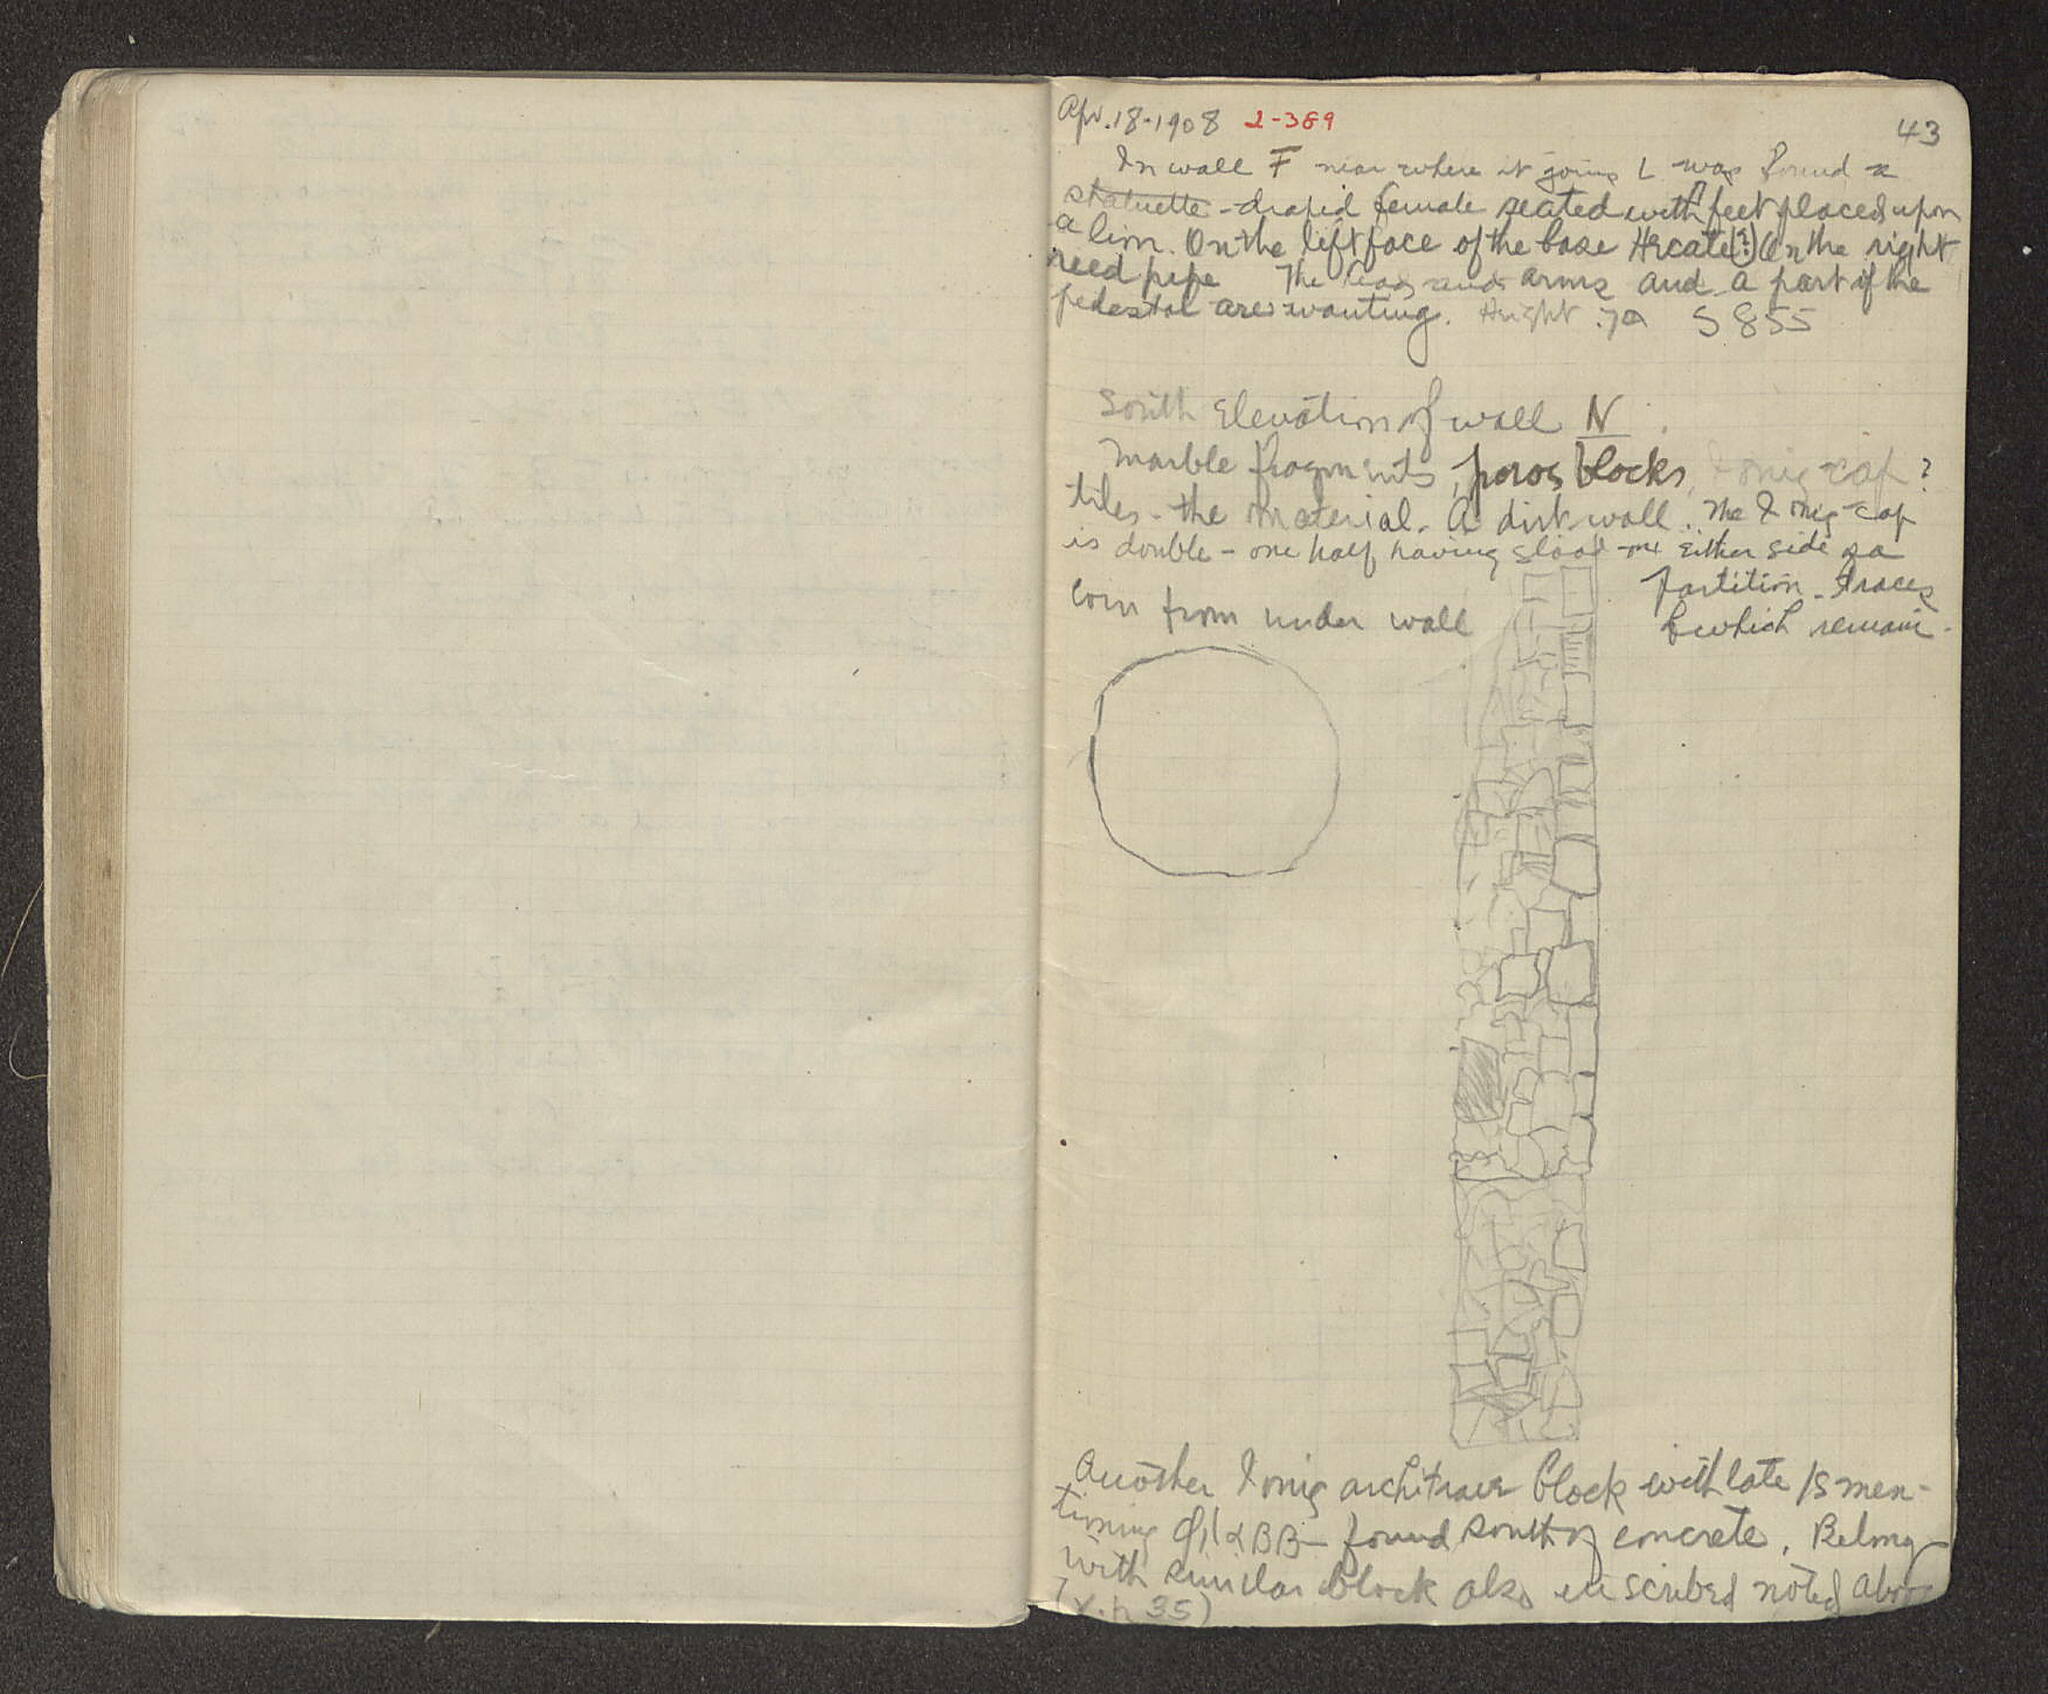 Apr. 18-1908 2-389 43
In wall F near where it joins L was found a
statuette - draped female seated with feet placed upon
a lion. On the left face of the base Hecate(?) On the right
reed pipe The head and arms and a part of the
pedestal are wanting. Height .70 S 855
South Elevation of wall N
Marble fragments, poros blocks, Ionic cap?
tiles - the material. A dirt wall. The Ionic cap
is double - one half having on either side of a
partition - traces
of which remain.
Coin from under wall
Another Ionic architrave block with late IS men-
tioning found south of concrete. Belong
with similar block also inscribed noted above
(v. p 35)